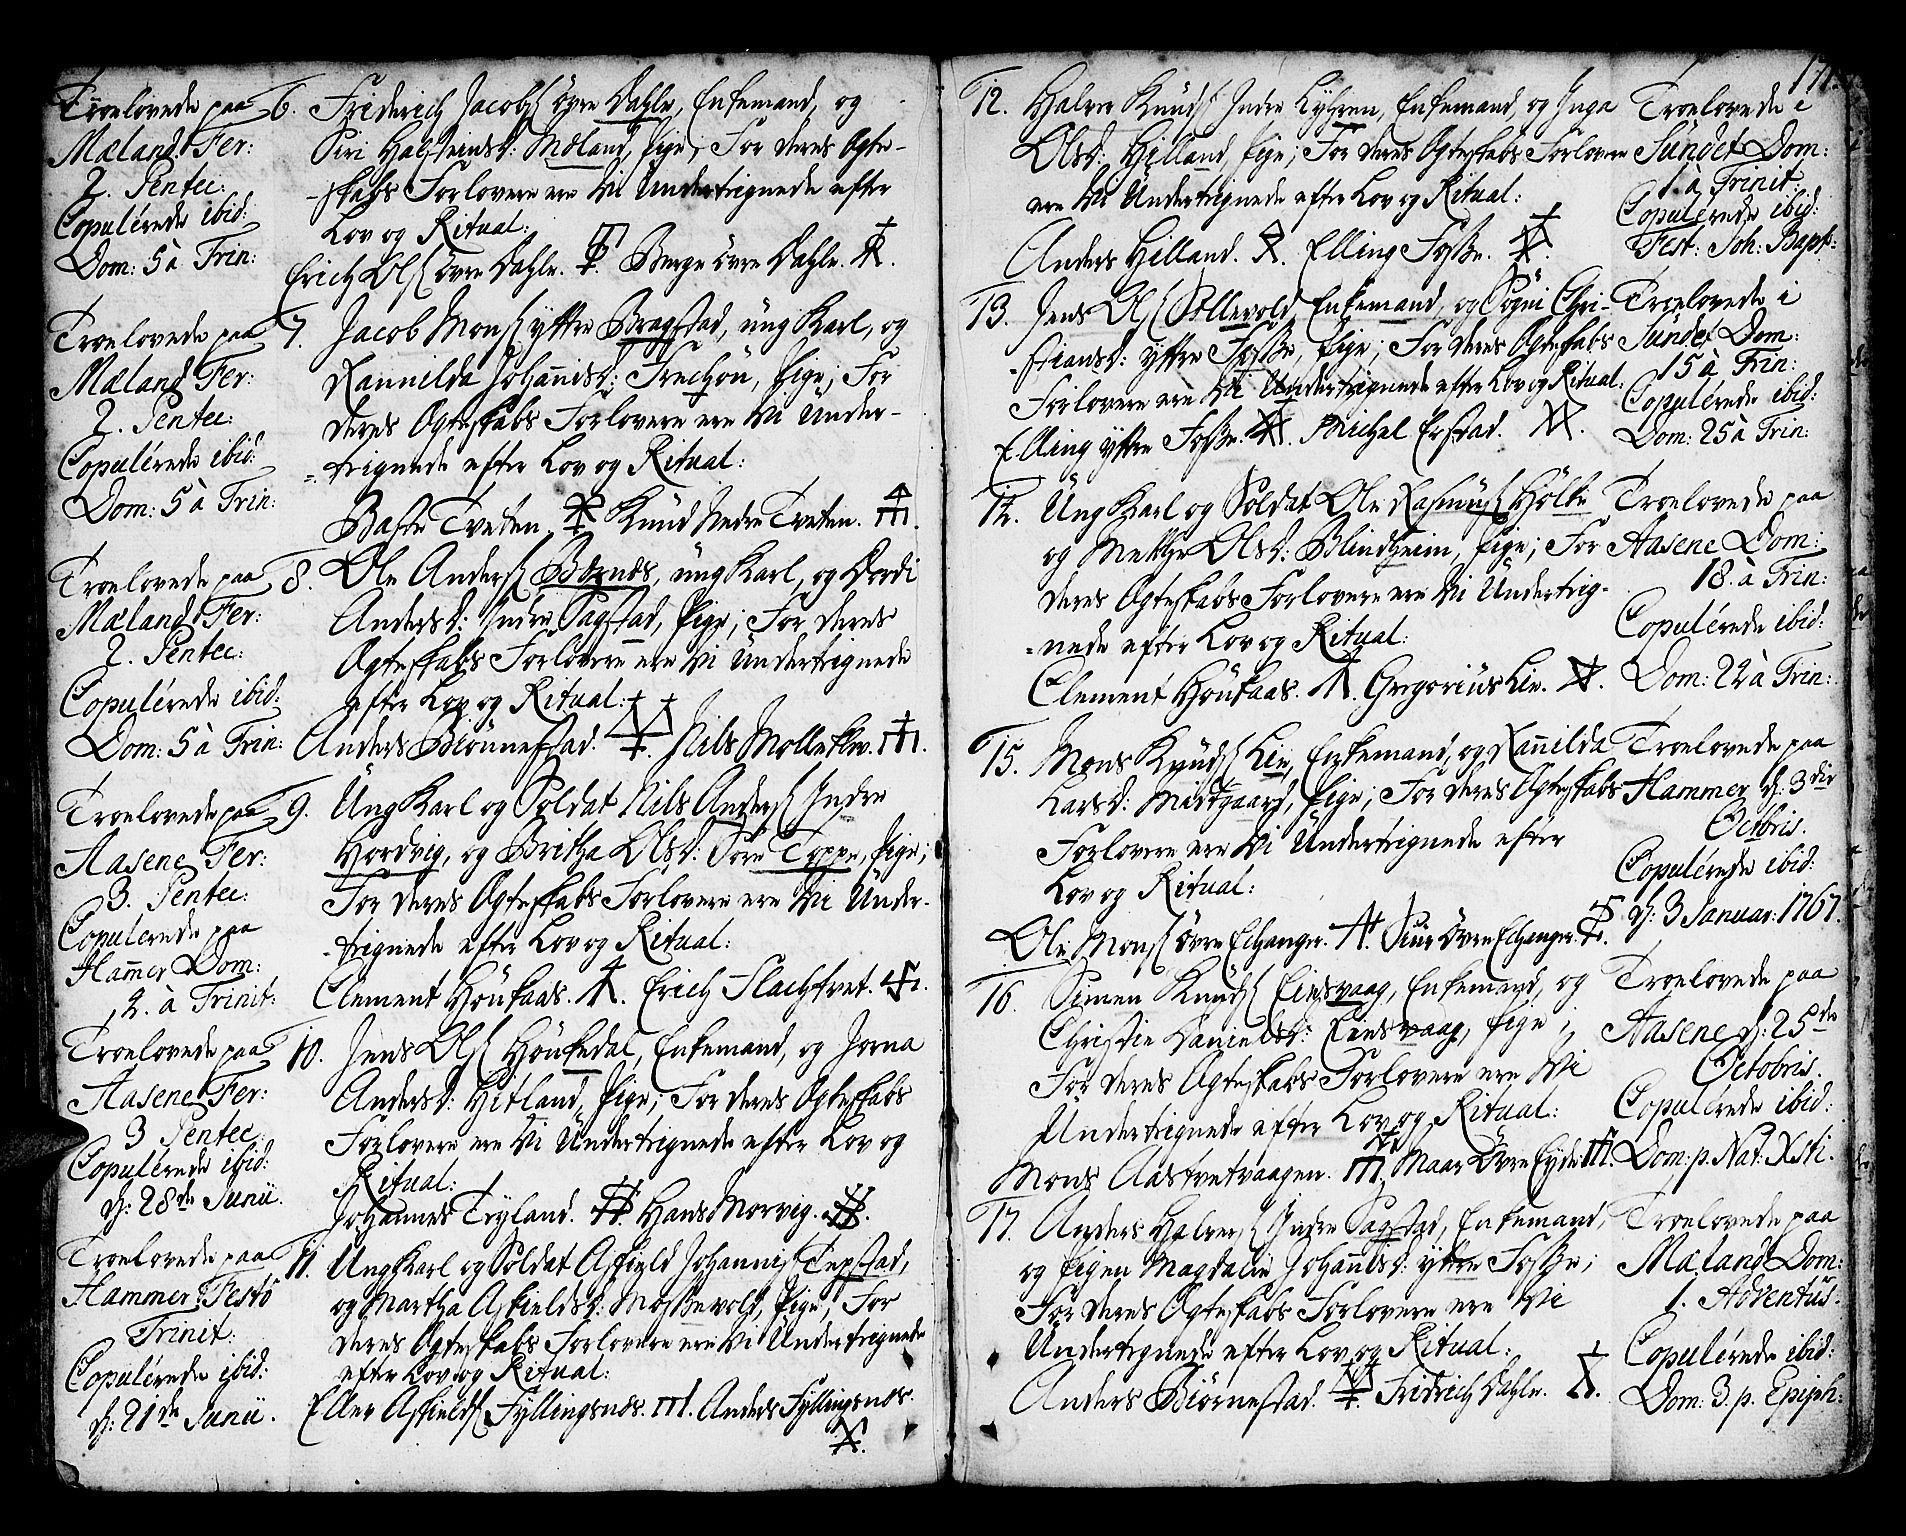 Troelovede paa
Mæland Fer:
2. Pentec:
Copulérede ibid:
Dom: 5 à Trin:
6. Friderich Jacobs øvre Dahle, Enkemand, og
Siri Halsteinsd: Møland, Pige; For deres Ægte-
-skabs Forlovere ere Vi Undertegnede efter
Lov og Ritual:
Erich Ols øvre Dahle. Berge øvre Dahle.
Troelovede paa
Mæland Fer:
2. Pentec:
Copulérede ibid:
Dom: 5 à Trin:
7. Jacob Mons yttre Bragstad, ung Karl, og
Rannilda Johannisd: Frechøu, Pige; For
deres Ægteskabs Forlovere ere Vi Under-
-tegnede efter Lov og Ritual:
Baste Tveten. Knud Nedre Tveten.
Troelovede paa
Mæland Fer:
2. Pentec:
Copulérede ibid:
Dom: 5 à Trin:
8. Ole Anders Børnæs, ung Karl, og Dordi
Andersd: Indre Sagstad, Pige; For deres
Ægteskabs Forlovere ere Vi Undertegnede
efter Lov og Ritual:
Anders Biønnestad. Nils Molleklev.
Troelovede paa
Aasene Fer:
3. Pentec:
Copulerede paa
Hammer Dom:
2. à Trinit:
9. Ung Karl og Soldat Nils Anders Indre
Hordvig, og Britha Olsd: Søre Toppe, Pige;
For deres Ægteskabs Forlovere ere Vi Under-
-tegnede efter Lov og Ritual:
Clement Høukaas. Erich Flachtvet.
Troelovede paa
Aasene Fer:
3 Pentec:
Copulérede ibid:
d: 28de Junii.
10. Jens Ols Høukedal, Enkemand, og Jorna
Andersd: Hitland, Pige; For deres Ægteskabs
Forlovere ere Vi Undertegnede efter Lov og
Ritual:
Johannes Tryland. Hans Morvig.
Troelovede paa
Hammer Festo
Trinit:
Copulérede ibid:
d: 21de Junii.
11. Ung Karl og Soldat Askield Johannis Tepstad,
og Martha Askieldsd: Mossevold, Pige; For
deres Ægteskabs Forlovere ere Vi Undertegnede
efter Lov og Ritual:
Eller Askields Fyllingsnæs. Anders Fyllingsnæs.
171.
12. Halvor Knuds Indre Kyhren, Enkemand, og Inga
Olsd: Hilland, Pige; For deres Ægteskabs Forlovere
ere Vi Undertegnede efter Lov og Ritual:
Anders Hilland. Elling Fosse.
Troelovede i
Sundet Dom:
1. à Trinit
Copulérede ibid:
Fest: Joh: Bapt:
13. Jens Ols Sollevold, Enkemand, og Sygni Chri-
-stiansd: yttre Fosse, Pige; For deres Ægteskabs
Forlovere ere Vi Undertegnede efter Lov og Ritual:
Elling yttre Fosse. Michel Erstad.
Troelovede i
Sundet Dom:
15 à Trin:
Copulérede ibid:
Dom: 25 à Trin:
14. Ung Karl og Soldat Ole Rasmus Holke
og Mekthe Olsd: Blindheim, Pige; For
deres Ægteskabs Forlovere ere Vi Underteg-
-nede efter Lov og Ritual:
Clement Høukaas. Gregorius Lie.
Troelovede paa
Aasene Dom:
18. à Trin:
Copulérede ibid:
Dom: 22 à Trin:
15. Mons Knuds Lie, Enkemand, og Rannilda
Larsd: Midtgaard, Pige; For deres Ægteskabs
Forlovere ere Vi Undertegnede efter
Lov og Ritual:
Ole Mons øvre Elhanger. Siur Øvre Elhanger.
Troelovede paa
Hammer d: 3die
Octbris.
Copulérede ibid:
d: 3 Januar: 1767.
16. Simen Knuds Eidsvaag, Enkemand, og
Christie Danielsd: Eidsvaag, Pige;
For deres Ægteskabs Forlovere ere Vi
Undertegnede efter Lov og Ritual:
Mons Aastvetvaagen. Maar Øvre Eyde.
Troelovede paa
Aasene d: 25de
Octobris.
Copulérede ibid:
Dom: p. Nat: Xsti.
17. Anders Halvors Indre Sagstad, Enkemand,
og Pigen Magdalie Johannisd: yttre Fosse;
For deres Ægteskabs Forlovere ere Vi
Undertegnede efter Lov og Ritual:
Anders Biørnestad. Fridrich Dahle.
Troelovede paa
Mæland Dom:
1. Adventus.
Copulérede ibid:
Dom: 3. p. Epiph: